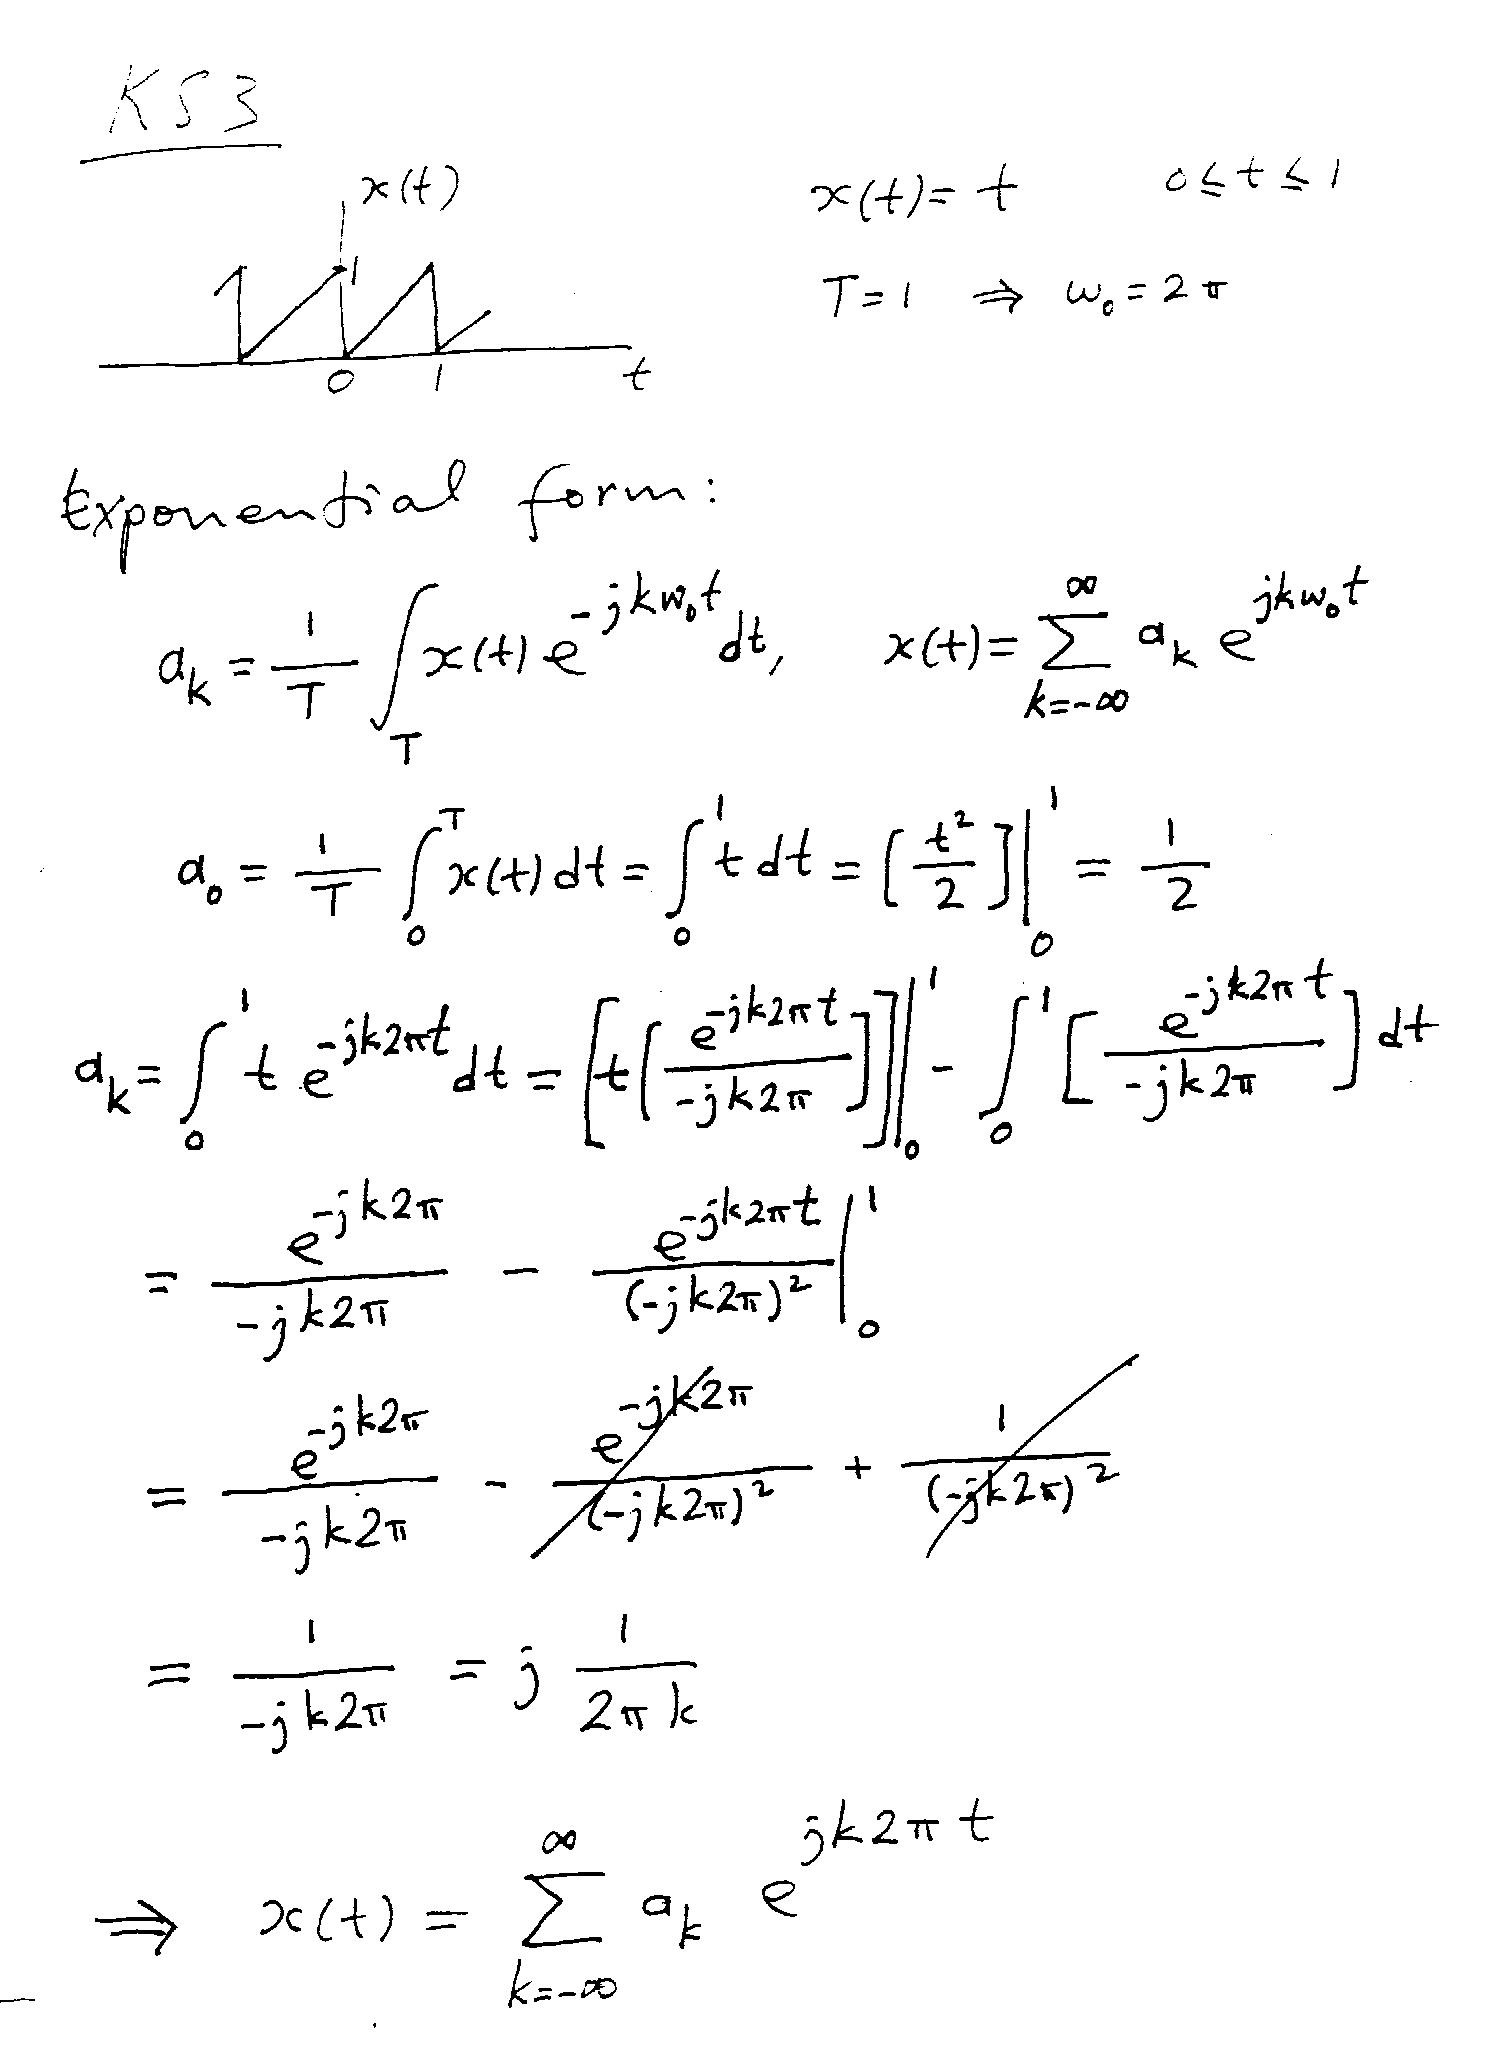 KS3
x(t)
x(t) = t 0 ≤ t ≤ 1
1
T = 1 ⇒ ω₀ = 2π
0 1 t
Exponential form:
a_k = 1/T ∫_T x(t) e^{-jkω₀t} dt, x(t) = ∑_{k=-∞}^{∞} a_k e^{jkω₀t}
a₀ = 1/T ∫_0^T x(t) dt = ∫_0^1 t dt = [t²/2]|_0^1 = 1/2
a_k = ∫_0^1 t e^{-jk2πt} dt = [t[e^{-jk2πt}/(-jk2π)]]|_0^1 - ∫_0^1 [e^{-jk2πt}/(-jk2π)] dt
= e^{-jk2π}/(-jk2π) - e^{-jk2πt}/(-jk2π)² |_0^1
= e^{-jk2π}/(-jk2π) - e^{-jk2π}/(-jk2π)² + 1/(-jk2π)²
= 1/(-jk2π) = j 1/(2πk)
⇒ x(t) = ∑_{k=-∞}^{∞} a_k e^{jk2πt}